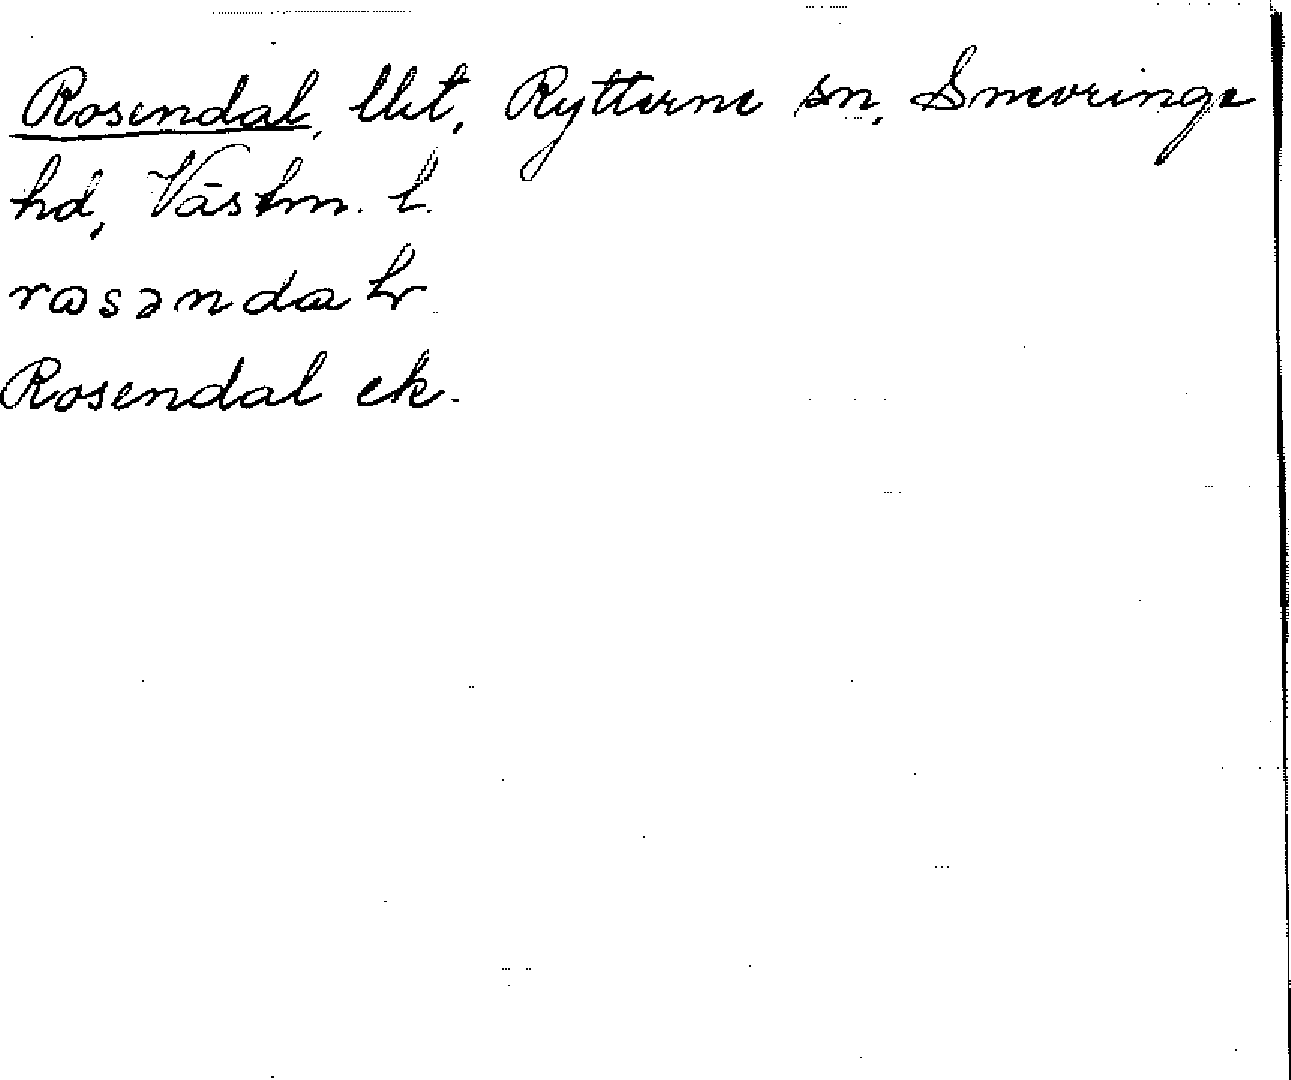 Rosendal, lht, Rytterne sn, Snevringe
hd, Västm. l.
rɷsəndɑ
Rosendal ek.